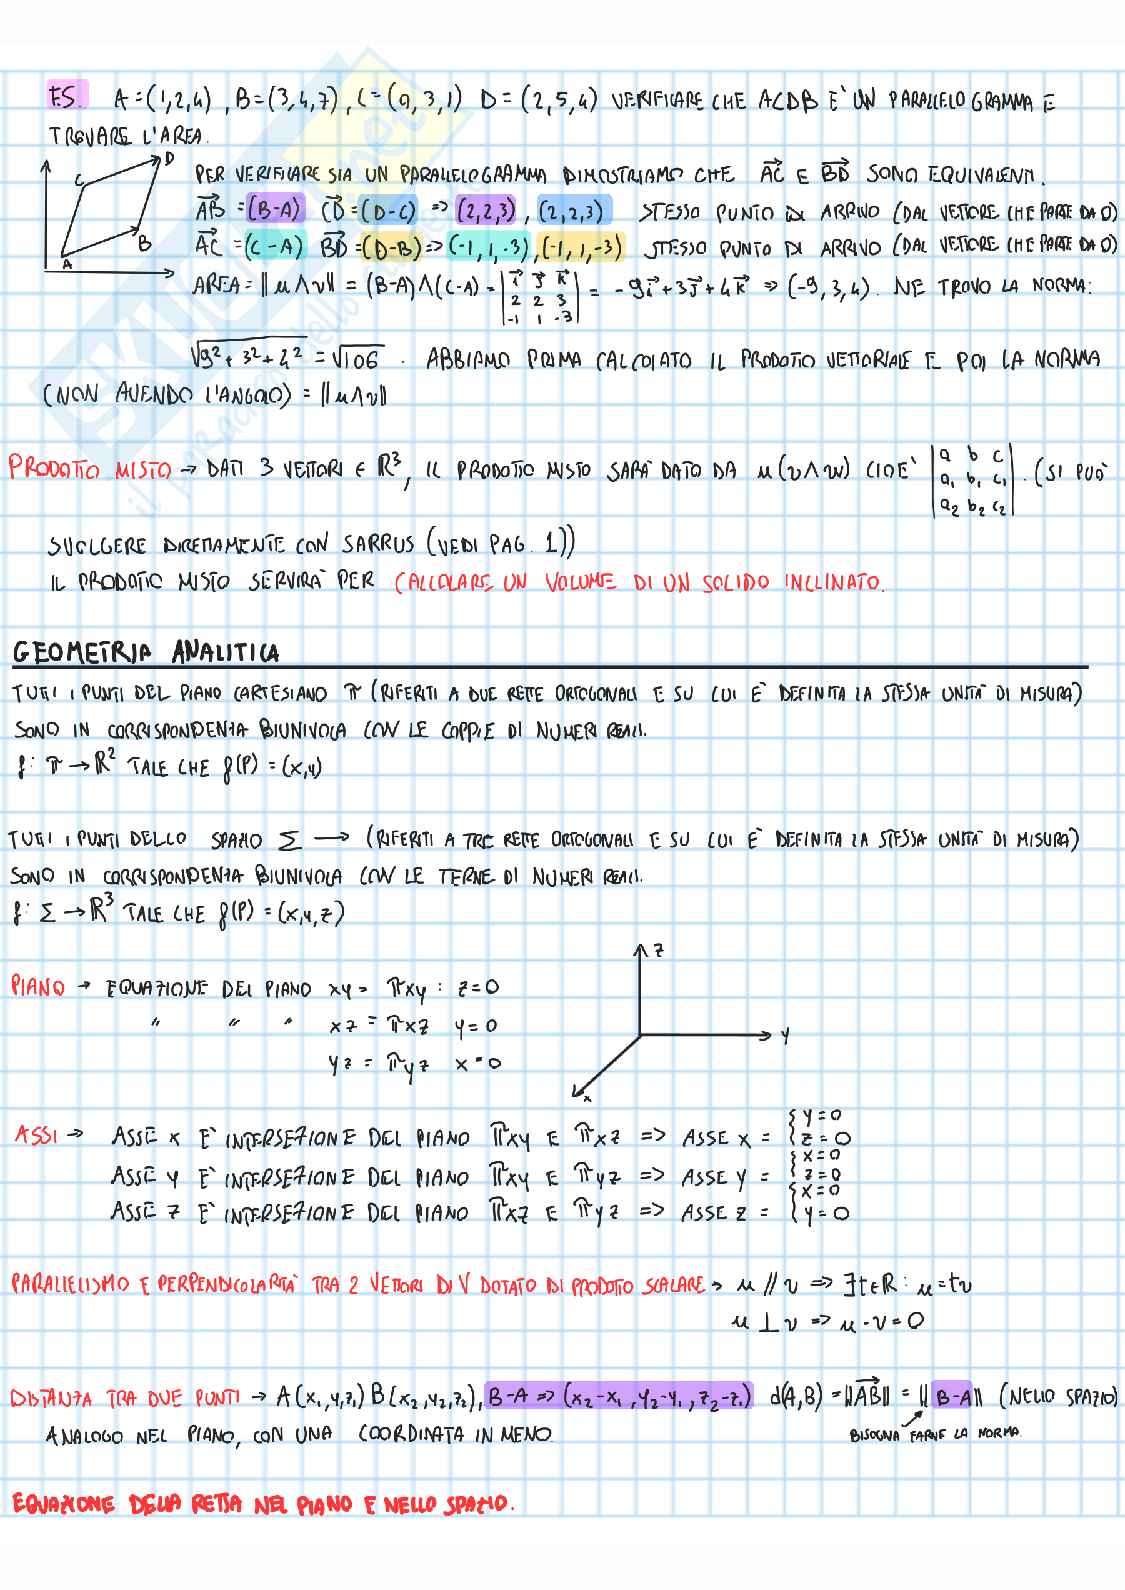 ES. A=(1,2,4), B=(3,4,7), C=(0,3,1) D=(2,5,4) VERIFICARE CHE ACDB E' UN PARALLELOGRAMMA E
TROVARE L'AREA.
PER VERIFICARE SIA UN PARALLELOGRAMMA DIMOSTRIAMO CHE AC E BD SONO EQUIVALENTI.
AB=(B-A) CD=(D-C) => (2,2,3), (2,2,3) STESSO PUNTO DI ARRIVO (DAL VETTORE CHE PARTE DA O)
AC=(C-A) BD=(D-B)=> (-1,1,-3), (-1,1,-3) STESSO PUNTO DI ARRIVO (DAL VETTORE CHE PARTE DA O)
C D A B
AREA=||u∧v|| = (B-A)∧(C-A) = |i j k| = -9i+3j+4k => (-9,3,4). NE TROVO LA NORMA:
2 2 3
-1 1 -3
√9²+3²+4² = √106 . ABBIAMO PRIMA CALCOLATO IL PRODOTTO VETTORIALE E POI LA NORMA
(NON AVENDO L'ANGOLO) = ||u∧v||
PRODOTTO MISTO → DATI 3 VETTORI ∈ R³, IL PRODOTTO MISTO SARA' DATO DA u(v∧w) CIOE' |a b c| . (SI PUO'
a₁ b₁ c₁
a₂ b₂ c₂
SVOLGERE DIRETTAMENTE CON SARRUS (VEDI PAG. 1))
IL PRODOTTO MISTO SERVIRA' PER CALCOLARE UN VOLUME DI UN SOLIDO INCLINATO.
GEOMETRIA ANALITICA
TUTTI I PUNTI DEL PIANO CARTESIANO π (RIFERITI A DUE RETTE ORTOGONALI E SU CUI E' DEFINITA LA STESSA UNITA' DI MISURA)
SONO IN CORRISPONDENZA BIUNIVOCA CON LE COPPIE DI NUMERI REALI.
f: π → R² TALE CHE f(P) = (x,y)
TUTTI I PUNTI DELLO SPAZIO Σ → (RIFERITI A TRE RETTE ORTOGONALI E SU CUI E' DEFINITA LA STESSA UNITA' DI MISURA)
SONO IN CORRISPONDENZA BIUNIVOCA CON LE TERNE DI NUMERI REALI.
f: Σ → R³ TALE CHE f(P) = (x,y,z)
PIANO → EQUAZIONE DEL PIANO xy = πxy : z=0
" " " xz = πxz y=0
yz = πyz x=0
z y x
ASSI → ASSE x E' INTERSEZIONE DEL PIANO πxy E πxz => ASSE x = { y=0 z=0
ASSE y E' INTERSEZIONE DEL PIANO πxy E πyz => ASSE y = { x=0 z=0
ASSE z E' INTERSEZIONE DEL PIANO πxz E πyz => ASSE z = { x=0 y=0
PARALLELISMO E PERPENDICOLARITA' TRA 2 VETTORI DI V DOTATO DI PRODOTTO SCALARE → u // v => ∃t∈R: u=tv
u ⊥ v => u·v=0
DISTANZA TRA DUE PUNTI → A(x₁,y₁,z₁) B(x₂,y₂,z₂), B-A => (x₂-x₁, y₂-y₁, z₂-z₁) d(A,B) = ||AB|| = ||B-A|| (NELLO SPAZIO)
ANALOGO NEL PIANO, CON UNA COORDINATA IN MENO. BISOGNA FARNE LA NORMA.
EQUAZIONE DELLA RETTA NEL PIANO E NELLO SPAZIO.